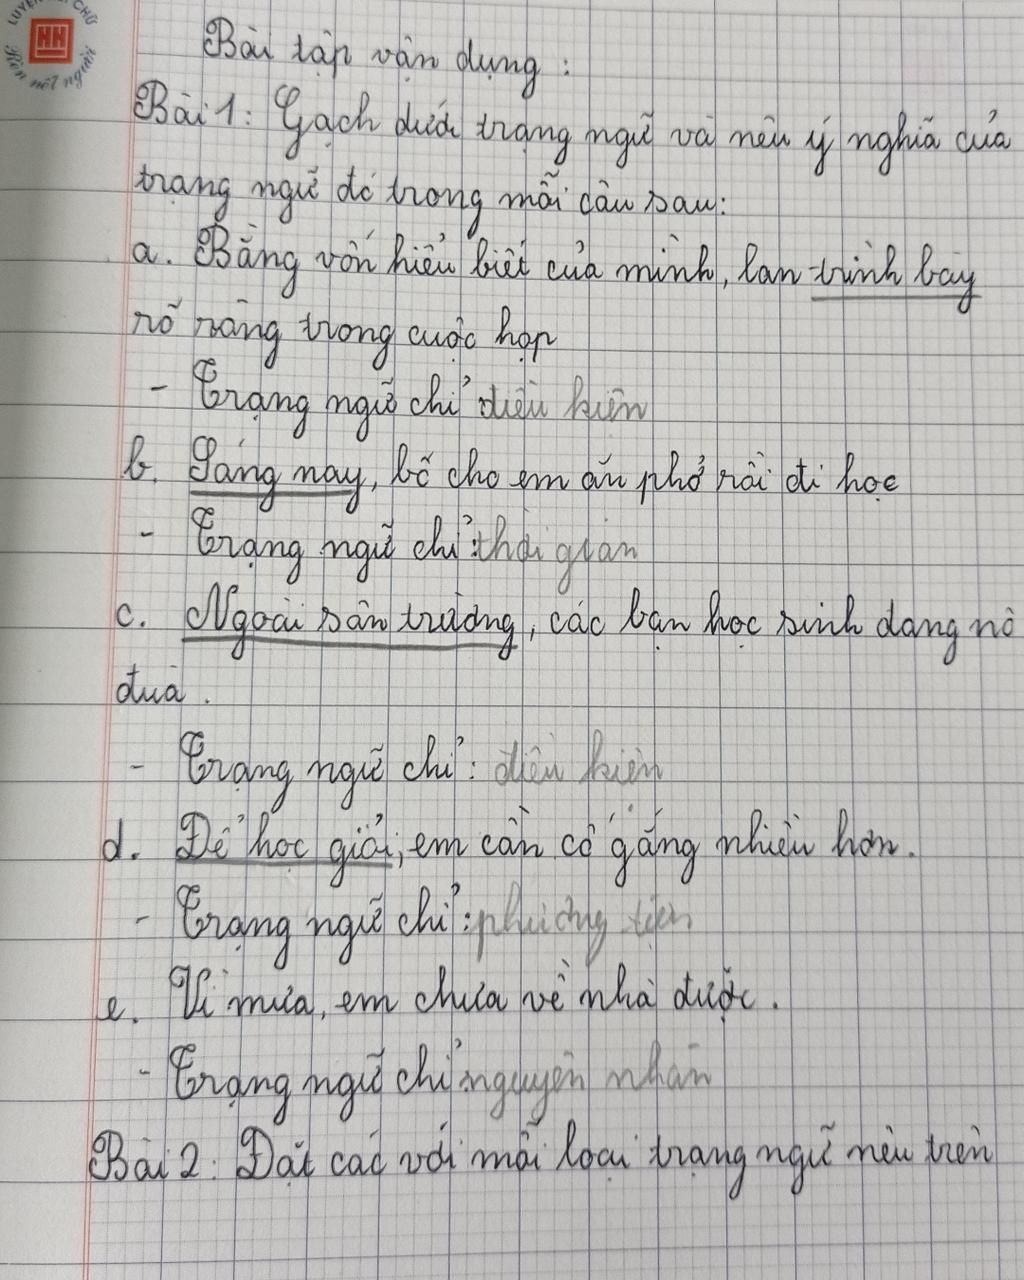 LUYỆN CHỮ
HH
Rèn nết người
Bài tập vận dụng :
Bài 1: Gạch dưới trạng ngữ và nêu ý nghĩa của
trạng ngữ đó trong mỗi câu sau:
a. Bằng vốn hiểu biết của mình, lan trình bày
rõ ràng trong cuộc họp
- Trạng ngữ chỉ điều kiện
b. Sáng nay, bố cho em ăn phở rồi đi học
- Trạng ngữ chỉ : thời gian
c. Ngoài sân trường, các bạn học sinh đang nô
đùa .
- Trạng ngữ chỉ : điều kiện
d. Để học giỏi, em cần cố gắng nhiều hơn.
- Trạng ngữ chỉ : phương tiện
e. Vì mưa, em chưa về nhà được .
- Trạng ngữ chỉ nguyên nhân
Bài 2: Đặt các với mỗi loại trạng ngữ nêu trên